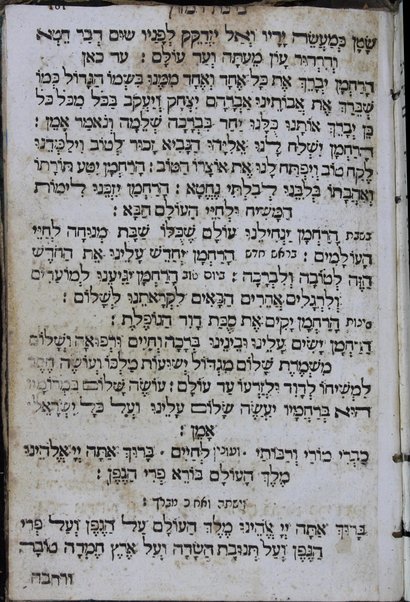 שָׂטָן בְּמַעֲשֵׂה יָדָיו וְאַל יִזְדַּקֵּק לְפָנָיו שׁוּם דְּבַר חֵטְא
וְהִרְהוּר עָוֹן מֵעַתָּה וְעַד עוֹלָם : עד כאן
הָרַחֲמָן יְבָרֵךְ אֶת כָּל אֶחָד וְאֶחָד מִמֶּנּוּ בִּשְׁמוֹ הַגָּדוֹל כְּמוֹ
שֶׁבֵּרַךְ אֶת אֲבוֹתֵינוּ אַבְרָהָם יִצְחָק וְיַעֲקֹב בַּכֹּל מִכֹּל כֹּל
כֵּן יְבָרֵךְ אוֹתָנוּ כֻּלָּנוּ יַחַד בִּבְרָכָה שְׁלֵמָה וְנֹאמַר אָמֵן :
הָרַחֲמָן יִשְׁלַח לָנוּ אֵלִיָּהוּ הַנָּבִיא זָכוּר לַטּוֹב וִילַמְּדֵנוּ
לֶקַח טוֹב וְיִפְתַּח לָנוּ אֶת אוֹצָרוֹ הַטּוֹב : הָרַחֲמָן יִטַּע תּוֹרָתוֹ
וְאַהֲבָתוֹ בְּלִבֵּנוּ לְבִלְתִּי נֶחֱטָא : הָרַחֲמָן יְזַכֵּנוּ לִימוֹת
הַמָּשִׁיחַ וּלְחַיֵּי הָעוֹלָם הַבָּא :
בשבת הָרַחֲמָן יַנְחִילֵנוּ עוֹלָם שֶׁכֻּלּוֹ שַׁבָּת מְנוּחָה לְחַיֵּי
הָעוֹלָמִים : בראש חדש הָרַחֲמָן יְחַדֵּשׁ עָלֵינוּ אֶת הַחֹדֶשׁ
הַזֶּה לְטוֹבָה וְלִבְרָכָה : ביום טוב הָרַחֲמָן יַגִּיעֵנוּ לְמוֹעֲדִים
וְלִרְגָלִים אֲחֵרִים הַבָּאִים לִקְרָאתֵנוּ לְשָׁלוֹם :
סוכות הָרַחֲמָן יָקִים אֶת סֻכַּת דָּוִד הַנּוֹפֶלֶת :
הָרַחֲמָן יָשִׂים עָלֵינוּ וּבֵינֵינוּ בְּרָכָה וְחַיִּים וּרְפוּאָה וְשָׁלוֹם
מִשְׁמֶרֶת שָׁלוֹם מִגְדּוֹל יְשׁוּעוֹת מַלְכּוֹ וְעוֹשֶׂה חֶסֶד
לִמְשִׁיחוֹ לְדָוִד וּלְזַרְעוֹ עַד עוֹלָם : עוֹשֶׂה שָׁלוֹם בִּמְרוֹמָיו
הוּא בְּרַחֲמָיו יַעֲשֶׂה שָׁלוֹם עָלֵינוּ וְעַל כָּל יִשְׂרָאֵל
אָמֵן :
סַבְרִי מוֹרַי וְרַבּוֹתַי · ועונין לְחַיִּים · בָּרוּךְ אַתָּה יְיָ אֱלֹהֵינוּ
מֶלֶךְ הָעוֹלָם בּוֹרֵא פְּרִי הַגָּפֶן :
וישתה ואח כ מברך :
בָּרוּךְ אַתָּה יְיָ אֱלֹהֵינוּ מֶלֶךְ הָעוֹלָם עַל הַגֶּפֶן וְעַל פְּרִי
הַגֶּפֶן וְעַל תְּנוּבַת הַשָּׂדֶה וְעַל אֶרֶץ חֶמְדָּה טוֹבָה
ורחבה